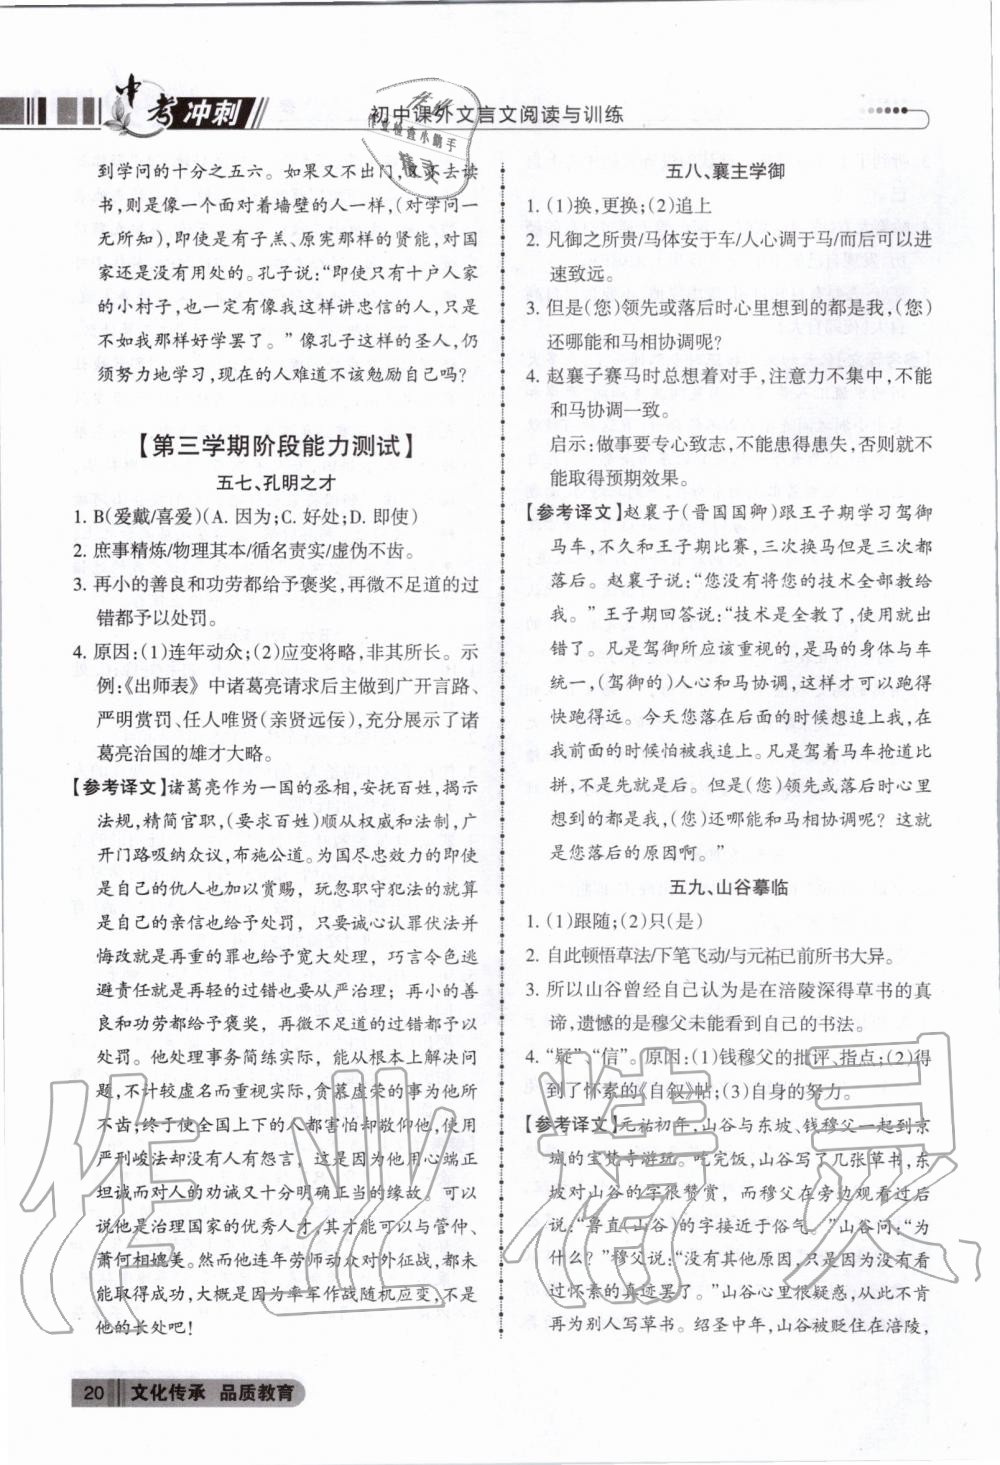 中考冲刺
初中课外文言文阅读与训练
作业检查小助手
精灵
到学问的十分之五六。如果又不出门,又不去读
书,则是像一个面对着墙壁的人一样,(对学问一
无所知),即使是有子羔、原宪那样的贤能,对国
家还是没有用处的。孔子说:“即使只有十户人家
的小村子,也一定有像我这样讲忠信的人,只是
不如我那样好学罢了。”像孔子这样的圣人,仍
须努力地学习,现在的人难道不该勉励自己吗?
【第三学期阶段能力测试】
五七、孔明之才
1. B(爱戴/喜爱)(A. 因为;C. 好处;D. 即使)
2. 庶事精炼/物理其本/循名责实/虚伪不齿。
3. 再小的善良和功劳都给予褒奖,再微不足道的过
错都予以处罚。
4. 原因:(1)连年动众;(2)应变将略,非其所长。示
例:《出师表》中诸葛亮请求后主做到广开言路、
严明赏罚、任人唯贤(亲贤远佞),充分展示了诸
葛亮治国的雄才大略。
【参考译文】诸葛亮作为一国的丞相,安抚百姓,揭示
法规,精简官职,(要求百姓)顺从权威和法制,广
开门路吸纳众议,布施公道。为国尽忠效力的即使
是自己的仇人也加以赏赐,玩忽职守犯法的就算
是自己的亲信也给予处罚,只要诚心认罪伏法并
悔改就是再重的罪也给予宽大处理,巧言令色逃
避责任就是再轻的过错也要从严治理;再小的善
良和功劳都给予褒奖,再微不足道的过错都给予以
处罚。他处理事务简练实际,能从根本上解决问
题,不计较虚名而重视实际,贪慕虚荣的事为他所
不齿;终于使全国上下的人都害怕却敬仰他,使用
严刑峻法却没有人有怨言,这是因为他用心端正
坦诚而对人的劝诫又十分明确正当的缘故。可以
说他是治理国家的优秀人才,其才能可以与管仲、
萧何相媲美。然而他连年劳师动众对外征战,都未
能取得成功,大概是因为率军作战随机应变,不是
他的长处吧!
五八、襄主学御
1. (1)换,更换;(2)追上
2. 凡御之所贵/马体安于车/人心调于马/而后可以进
速致远。
3. 但是(您)领先或落后时心里想到的都是我,(您)
还哪能和马相协调呢?
4. 赵襄子赛马时总想着对手,注意力不集中,不能
和马协调一致。
启示:做事要专心致志,不能患得患失,否则就不
能取得预期效果。
【参考译文】赵襄子(晋国国卿)跟王子期学习驾御
马车,不久和王子期比赛,三次换马但是三次都
落后。赵襄子说:“您没有将您的技术全部教给
我。”王子期回答说:“技术是全教了,使用就出
错了。凡是驾御所应该重视的,是马的身体与车
统一,(驾御的)人心和马协调,这样才可以跑得
快跑得远。今天您落在后面的时候想追上我,在
我前面的时候怕被我追上。凡是驾着马车抢道比
拼,不是先就是后。但是(您)领先或落后时心里
想到的都是我,(您)还哪能和马相协调呢?这就
是您落后的原因啊。”
五九、山谷摹临
1. (1)跟随;(2)只(是)
2. 自此顿悟草法/下笔飞动/与元祐已前所书大异。
3. 所以山谷曾经自己认为是在涪陵深得草书的真
谛,遗憾的是穆父未能看到自己的书法。
4. “疑”“信”。原因:(1)钱穆父的批评、指点;(2)得
到了怀素的《自叙》帖;(3)自身的努力。
【参考译文】元祐初年,山谷与东坡、钱穆父一起到京
城的宝梵寺游玩。吃完饭,山谷写了几张草书,东
坡对山谷的字很赞赏,而穆父在旁边观看过后
说:“鲁直(山谷)的字接近于俗气。”山谷问:“为
什么?”穆父说:“没有其他原因,只是因为没有看
过怀素的真迹罢了。”山谷心里很疑惑,从此不肯
再为别人写草书。绍圣中年,山谷被贬住在涪陵,
作业精灵
20 文化传承 品质教育